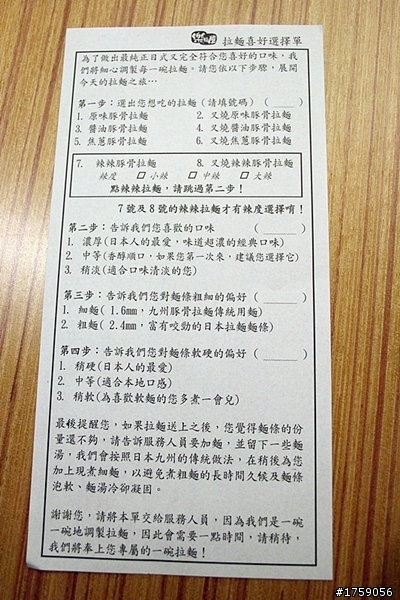 拉麵喜好選擇單
為了做出最純正日式又完全符合您喜好的口味，我
們將細心調製每一碗拉麵。請您依以下步驟，展開
今天的拉麵之旅…
第一步：選出您想吃的拉麵（請填號碼）（____）
1. 原味豚骨拉麵 2. 叉燒原味豚骨拉麵
3. 醬油豚骨拉麵 4. 叉燒醬油豚骨拉麵
5. 焦蔥豚骨拉麵 6. 叉燒焦蔥豚骨拉麵
7. 辣辣豚骨拉麵 8. 叉燒辣辣豚骨拉麵
辣度 □ 小辣 □ 中辣 □ 大辣
點辣辣拉麵，請跳過第二步！
7 號及 8 號的辣辣拉麵才有辣度選擇唷！
第二步：告訴我們您喜歡的口味 （____）
1. 濃厚(日本人的最愛，味道超濃的經典口味)
2. 中等(香醇順口，如果您第一次來，建議您選擇它)
3. 稍淡(適合口味清淡的您)
第三步：告訴我們您對麵條粗細的偏好（____）
1. 細麵( 1.6mm，九州豚骨拉麵傳統用麵)
2. 粗麵( 2.4mm，富有咬勁的日本拉麵麵條)
第四步：告訴我們您對麵條軟硬的偏好（____）
1. 稍硬(日本人的最愛)
2. 中等(適合本地口感)
3. 稍軟(為喜歡軟麵的您多煮一會兒)
最後提醒您，如果拉麵送上之後，您覺得麵條的份
量還不夠，請告訴服務人員要加麵，並留下一些麵
湯，我們會按照日本九州的傳統做法，在稍後為您
加上現煮細麵，以避免煮粗麵的長時間久候及麵條
泡軟、麵湯冷卻凝固。
謝謝您，請將本單交給服務人員，因為我們是一碗
一碗地調製拉麵，因此會需要一點時間，請稍待，
我們將奉上您專屬的一碗拉麵！
#1759056